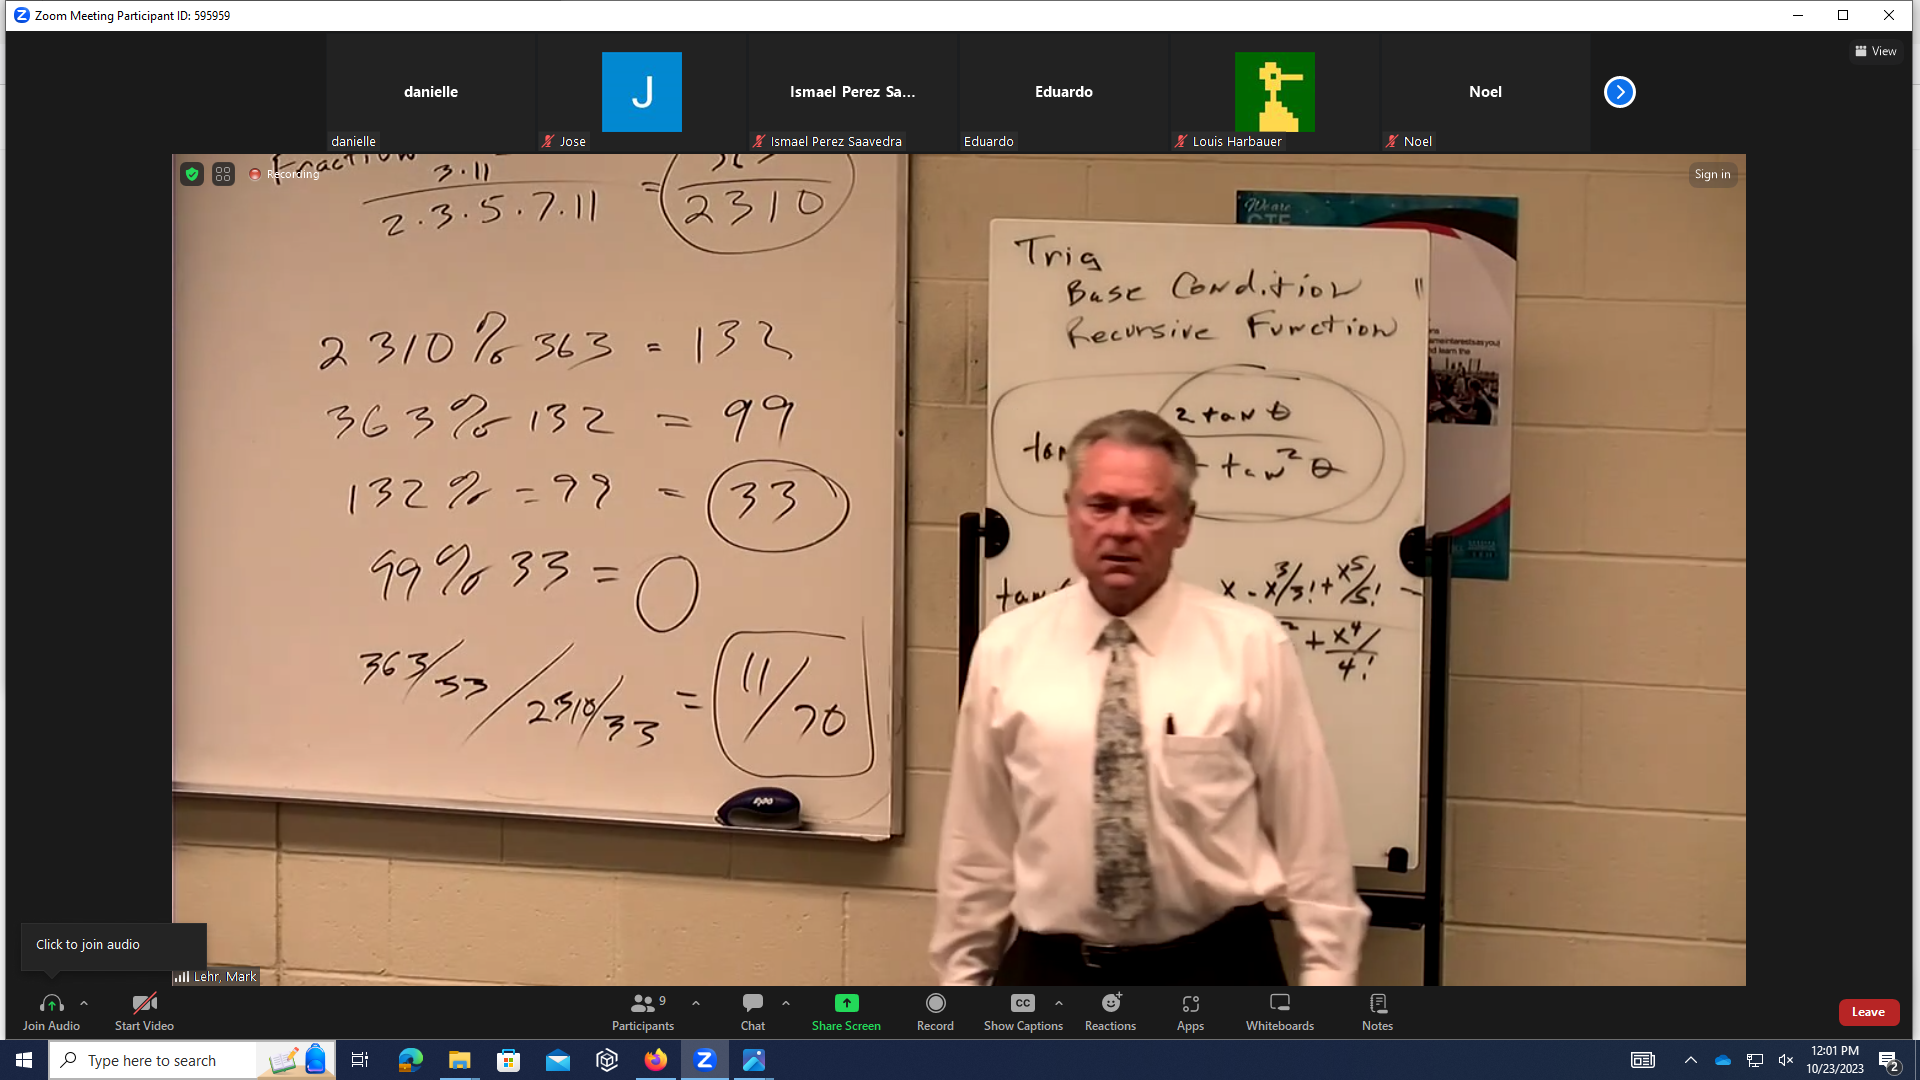 Zoom Meeting Participant ID: 595959
View
danielle
J
Ismael Perez Sa...
Eduardo
Noel
danielle
Jose
Ismael Perez Saavedra
Eduardo
Louis Harbauer
Noel
Recording
Sign in
Fraction
3·11
2·3·5·7·11
=
2310
2310 % 363 = 132
363 % 132 = 99
132 % = 99 = 33
99 % 33 = 0
363/33 / 2310/33 = 11/70
expo
We are
CTE
Trig
Base Condition "
Recursive Function
2 tan θ
tan
- tan² θ
tan
x - x³/3! + x⁵/5! -
² + x⁴/4!
and learn the
Click to join audio
Lehr, Mark
Join Audio
Start Video
Participants
9
Chat
Share Screen
Record
CC
Show Captions
Reactions
Apps
Whiteboards
Notes
Leave
Type here to search
12:01 PM
10/23/2023
2